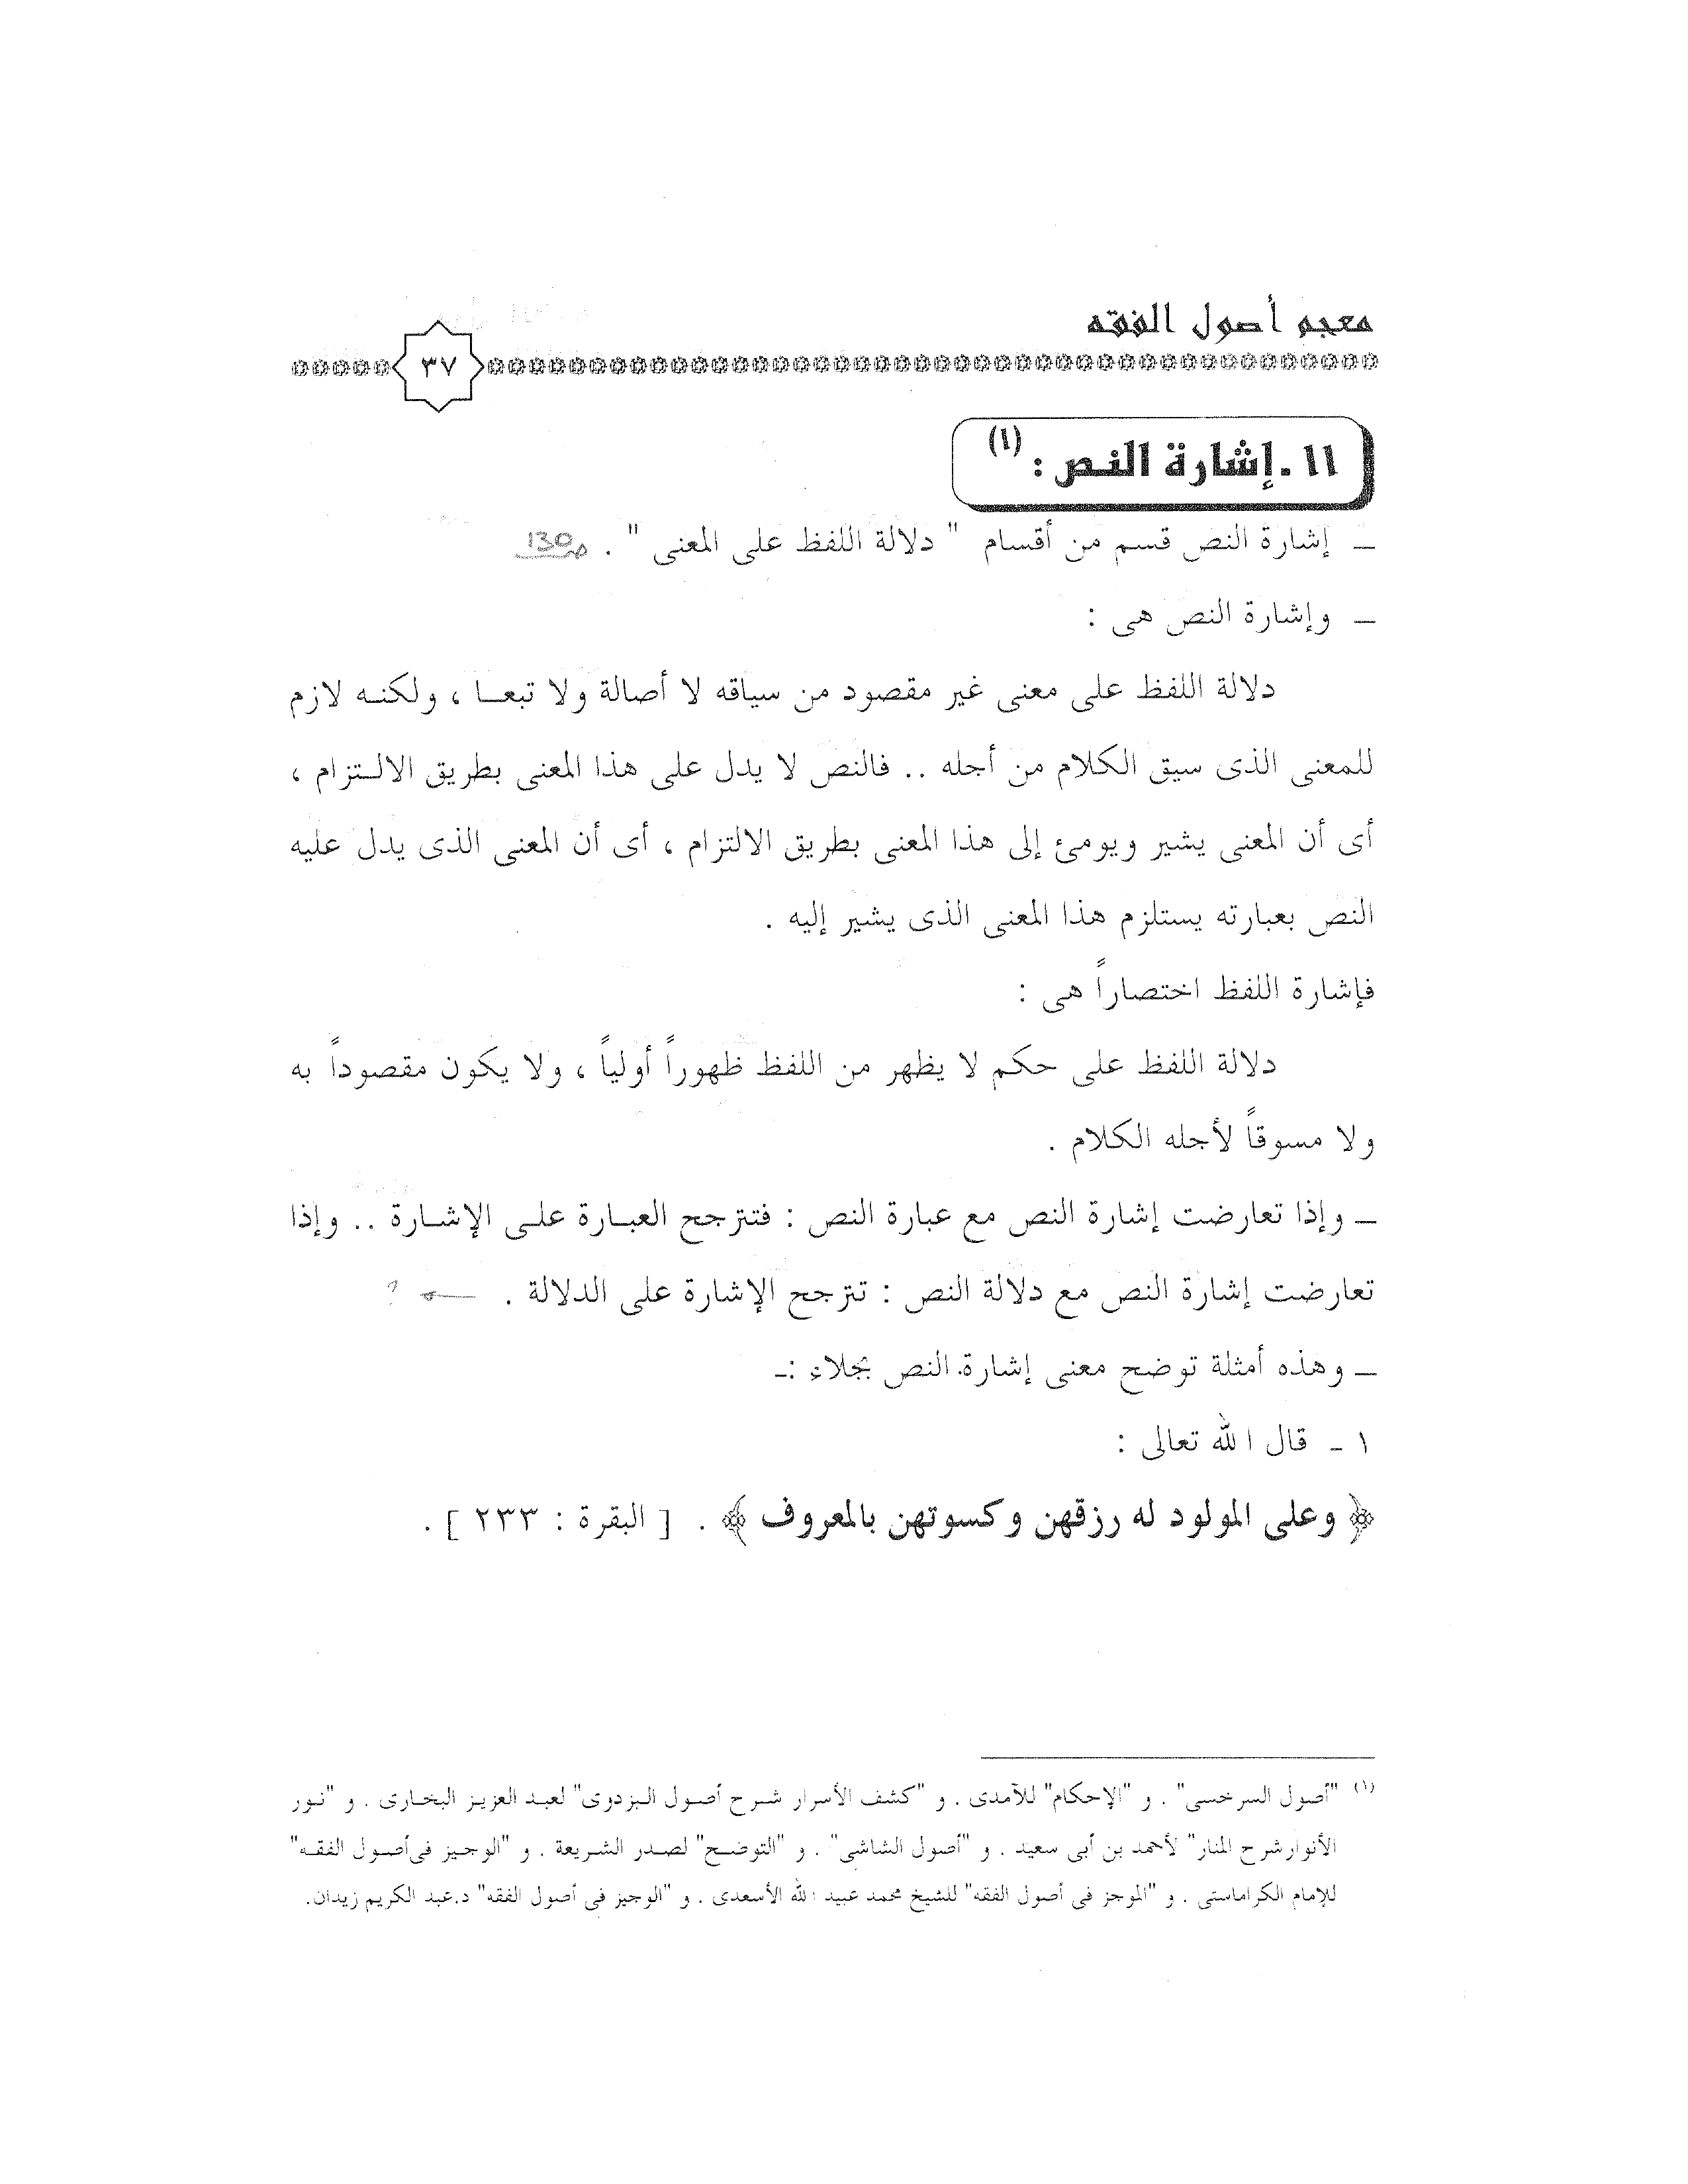 معجم أصول الفقه
٣٧
١١ . إشارة النص : (١)
ـ إشارة النص قسم من أقسام " دلالة اللفظ على المعنى " . ص130
ـ وإشارة النص هى :
دلالة اللفظ على معنى غير مقصود من سياقه لا أصالة ولا تبعـا ، ولكنـه لازم
للمعنى الذى سيق الكلام من أجله .. فالنص لا يدل على هذا المعنى بطريق الالـتزام ،
أى أن المعنى يشير ويومئ إلى هذا المعنى بطريق الالتزام ، أى أن المعنى الذى يدل عليه
النص بعبارته يستلزم هذا المعنى الذى يشير إليه .
فإشارة اللفظ اختصاراً هى :
دلالة اللفظ على حكم لا يظهر من اللفظ ظهوراً أولياً ، ولا يكون مقصوداً به
ولا مسوقاً لأجله الكلام .
ـ وإذا تعارضت إشارة النص مع عبارة النص : فتترجح العبـارة علـى الإشـارة .. وإذا
تعارضت إشارة النص مع دلالة النص : تترجح الإشارة على الدلالة . ?
ـ وهذه أمثلة توضح معنى إشارة النص بجلاء :ـ
١ ـ قال الله تعالى :
﴿ وعلى المولود له رزقهن وكسوتهن بالمعروف ﴾ . [ البقرة : ٢٣٣ ] .
(١) "أصول السرخسى" . و "الإحكام" للآمدى . و "كشف الأسرار شـرح أصـول البزدوى" لعبـد العزيـز البخـارى . و "نـور
الأنوارشرح المنار" لأحمد بن أبى سعيد . و "أصول الشاشى" . و "التوضـح" لصـدر الشـريعة . و "الوجـيز فىأصـول الفقـه"
للإمام الكراماستى . و "الموجز فى أصول الفقه" للشيخ محمد عبيد الله الأسعدى . و "الوجيز فى أصول الفقه" د.عبد الكريم زيدان.